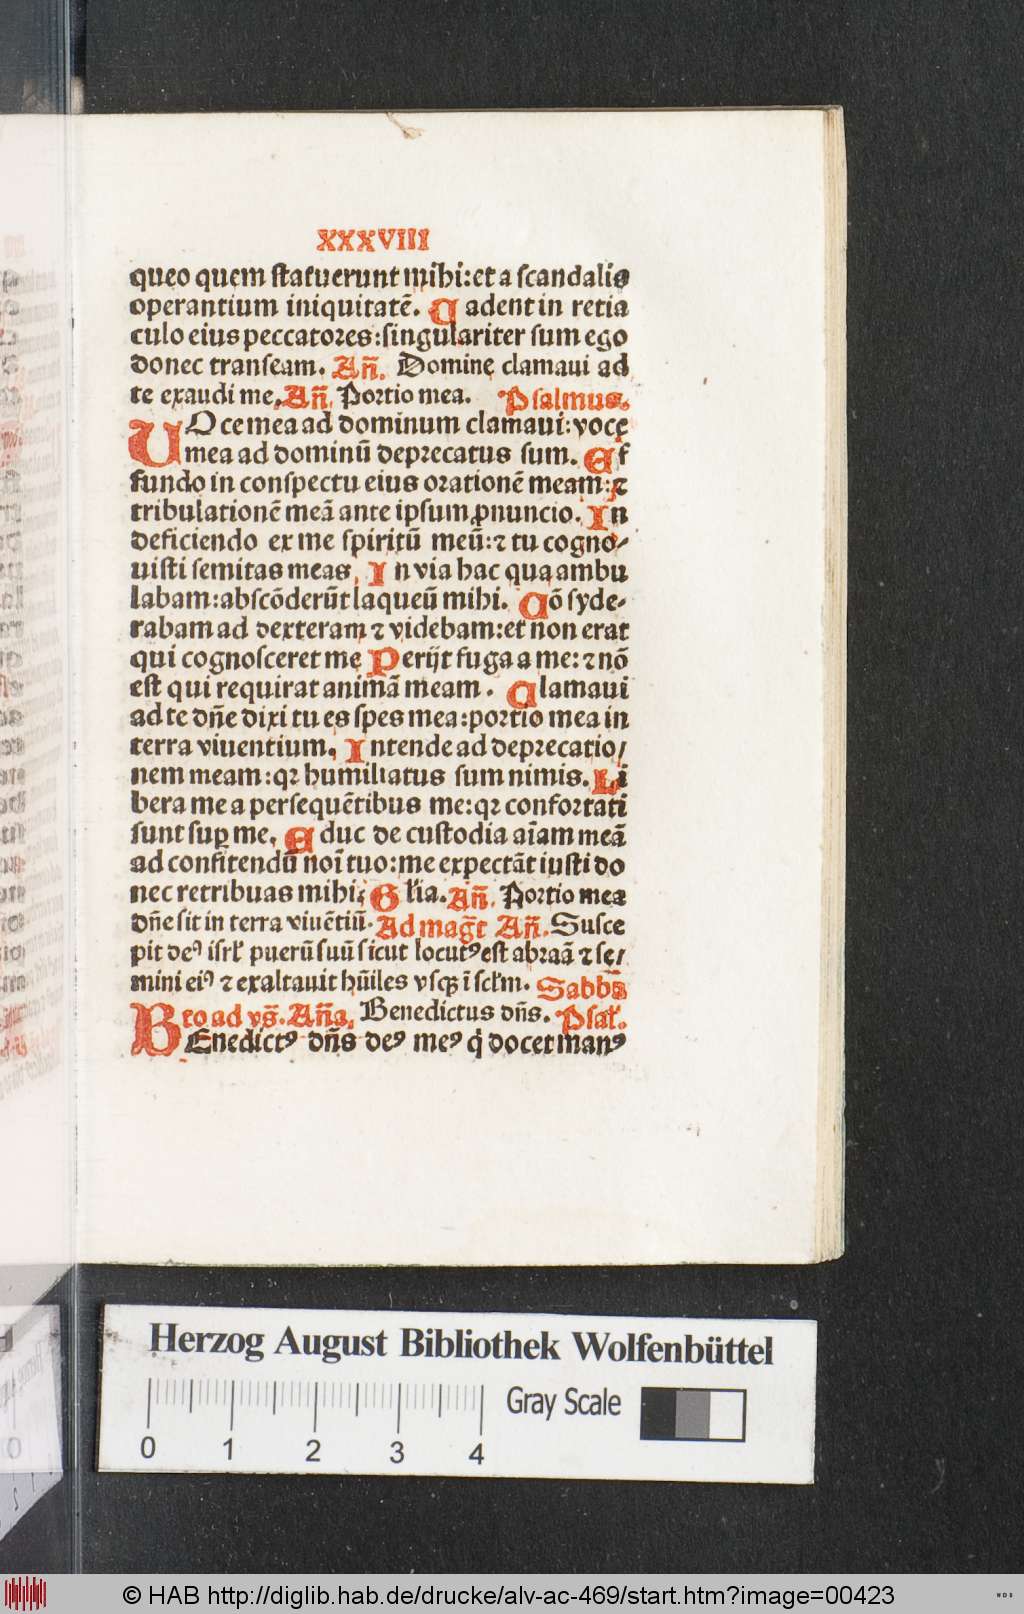 XXXVIII
queo quem statuerunt mihi: et a scandalis
operantium iniquitatē. Cadent in retia
culo eius peccatores: singulariter sum ego
donec transeam. Añ. Domine clamaui ad
te exaudi me. Añ. Portio mea. Psalmus.
UOce mea ad dominum clamaui: voce
mea ad dominū deprecatus sum. Ef
fundo in conspectu eius orationē meam: ⁊
tribulationē meā ante ipsum ꝓnuncio. In
deficiendo ex me spiritū meū: ⁊ tu cogno⸗
uisti semitas meas. In via hac qua ambu
labam: abscōderūt laqueū mihi. Cō syde⸗
rabam ad dexteram ⁊ videbam: et non erat
qui cognosceret me Perijt fuga a me: ⁊ nō
est qui requirat animā meam. Clamaui
ad te dñe dixi tu es spes mea: portio mea in
terra viuentium. Intende ad deprecatio/
nem meam: qꝛ humiliatus sum nimis. Li
bera me a persequētibus me: qꝛ confortati
sunt suꝑ me. Educ de custodia aīam meā
ad confitendū noī tuo: me expectāt iusti do
nec retribuas mihi. Gľia. Añ. Portio mea
dñe sit in terra viuētiū. Ad mag̃t Añ. Susce
pit deꝰ isrľ puerū suū sicut locutꝰ est abraā ⁊ se/
mini eiꝰ ⁊ exaltauit hūiles vsqꝫ ī scľm. Sabbō
to ad vs̃. Añā. Benedictus dñs. Psaľ.
BEnedictꝰ dñs deꝰ meꝰ q̇ docet manꝰ
Herzog August Bibliothek Wolfenbüttel
Gray Scale
0 1 2 3 4
© HAB http://diglib.hab.de/drucke/alv-ac-469/start.htm?image=00423